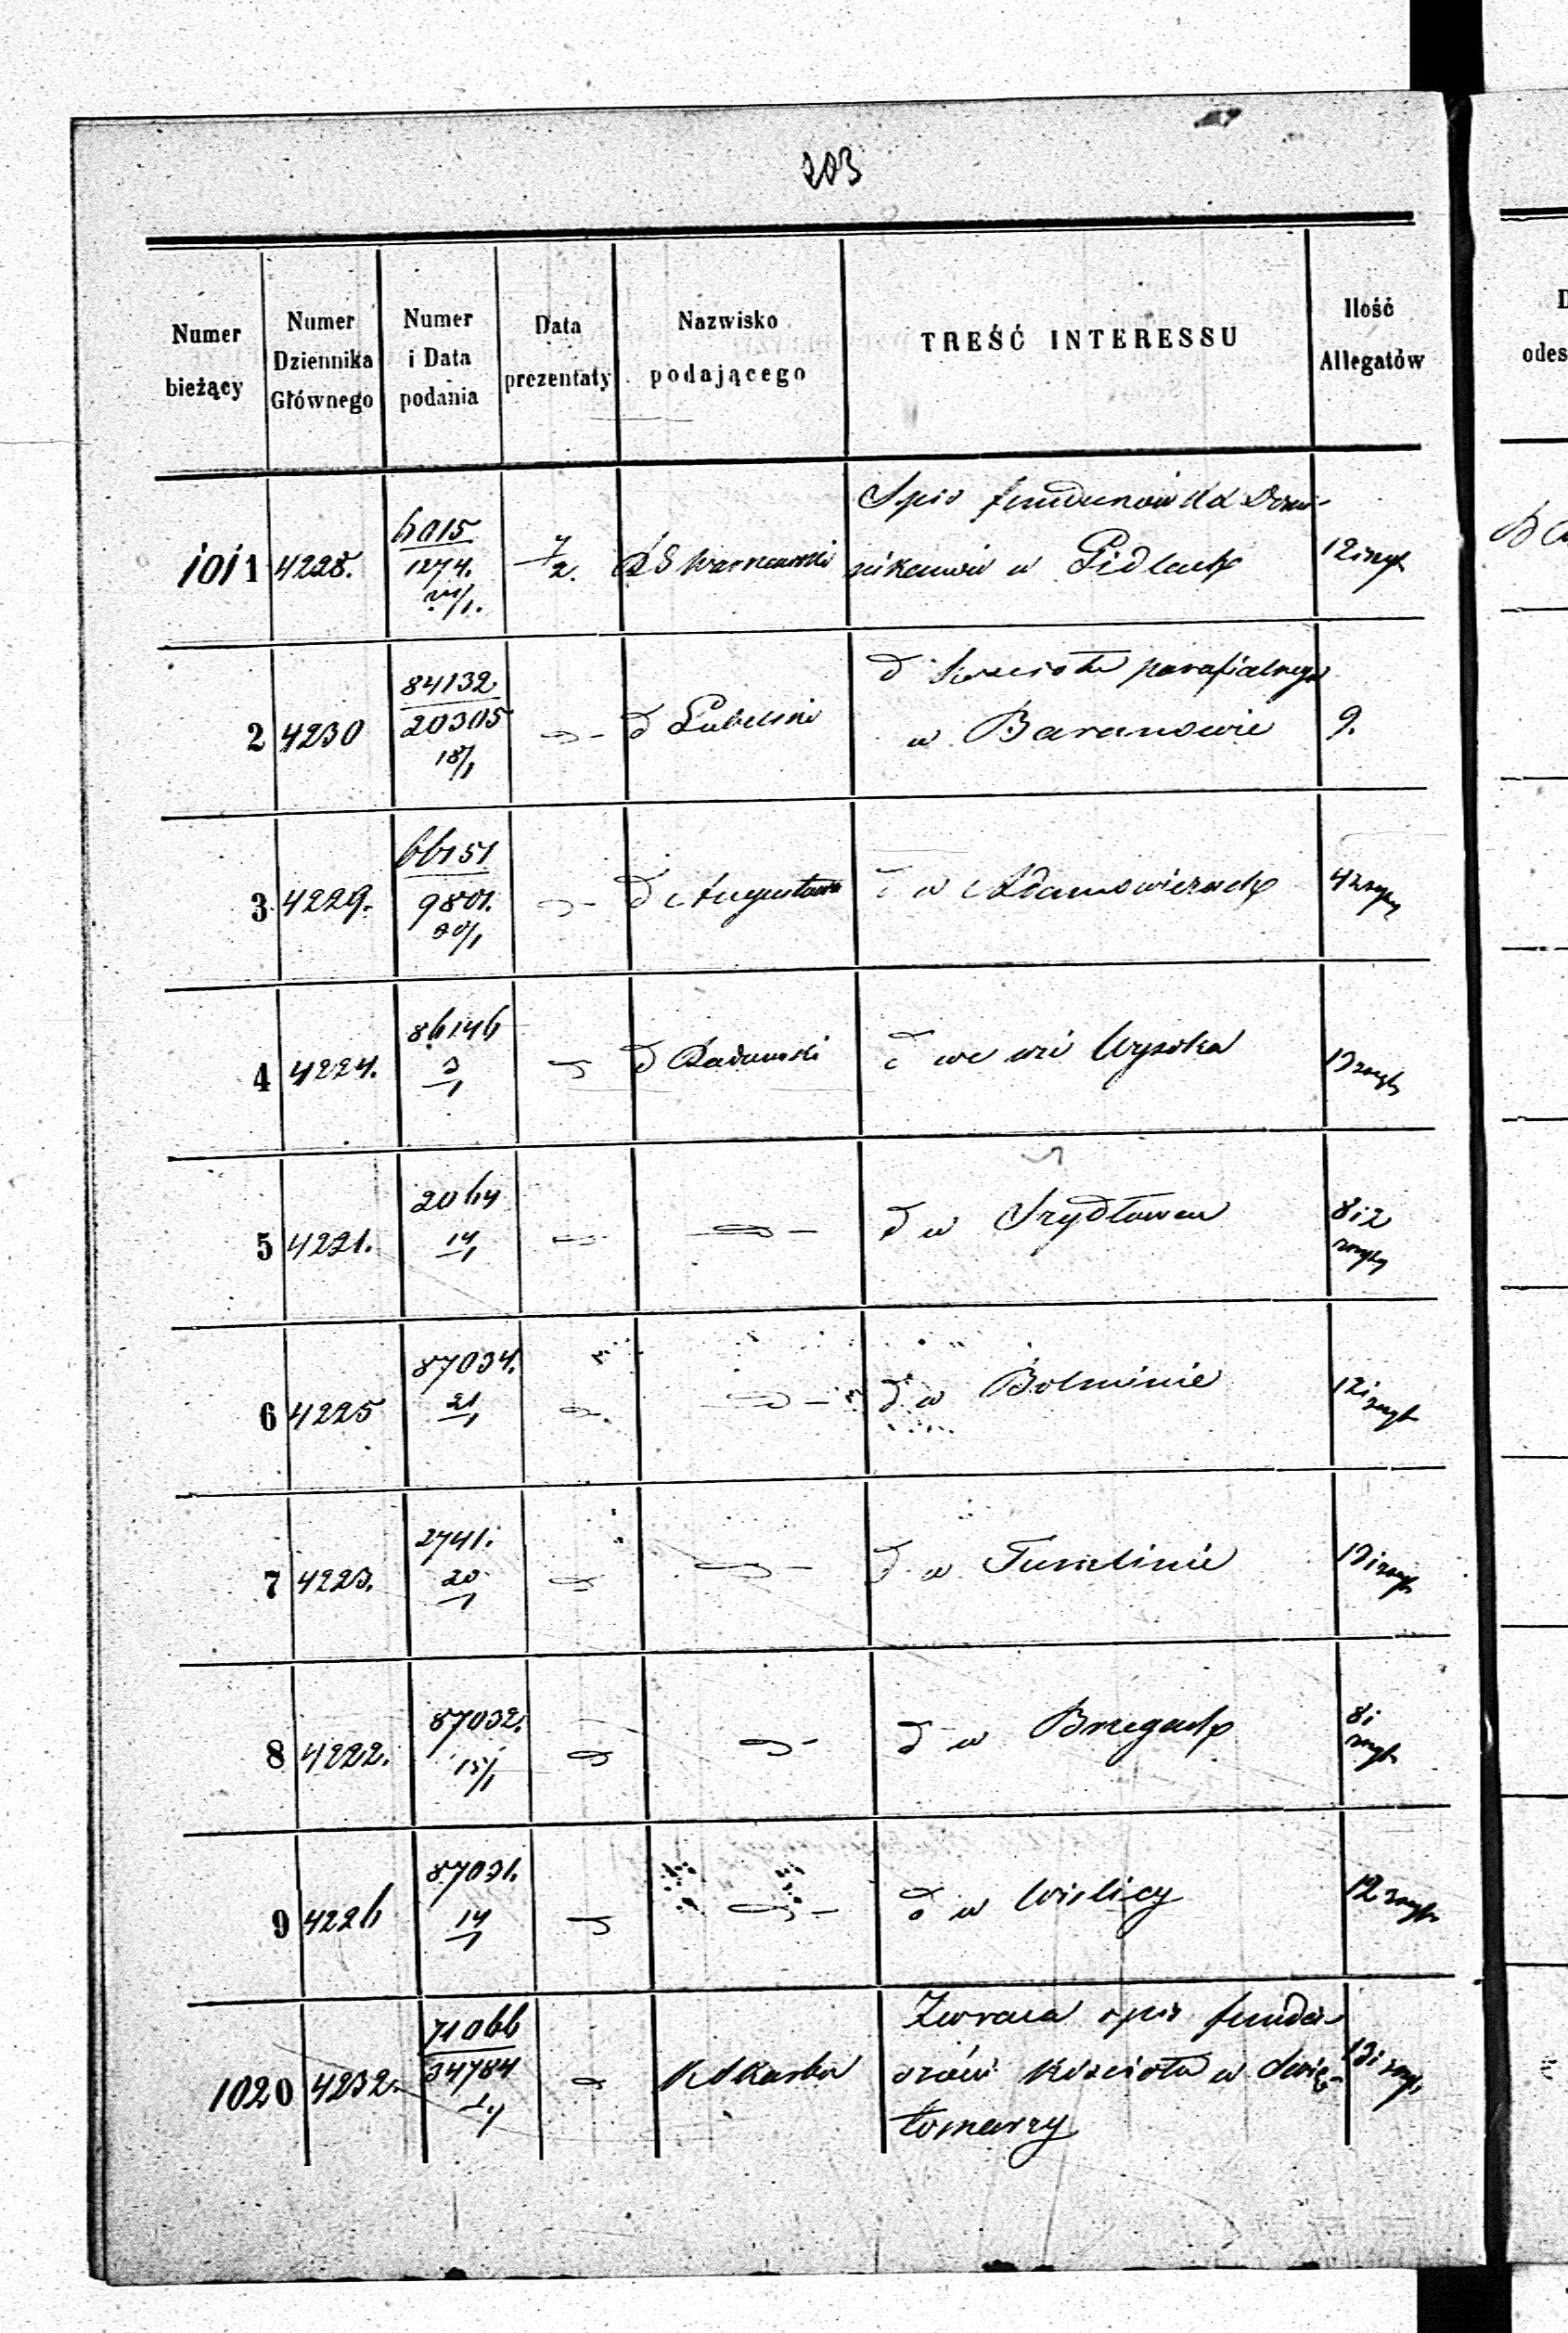 203
Numer bieżący
Numer Dziennika Głównego
Numer i Data podania
Data prezentaty
Nazwisko podającego
TREŚĆ INTERESSU
Ilość Allegatów
1011 4228. 6015 1274. 7/2. Warszawski Spis funduszów
w Gidlach 12 i
2 4230 84132 20305 18/1 d Lubelski d Kościoła parafialnego
w Baranowie 9.
3 4229. 66151 9801. 20/1 d Augustows d w Adamowiczach 4
4 4224. 86146 3/1 d Radomski d we wsi Wysoka 13
5 4221. 2064 14/1 d w Szydłowcu 8 i 2
6 4225 87034. 21/1 d w Bolminie 12 i
7 4223. 2741. 20/1 d w Tumlinie 13 i
8 4222. 87032. 15/1 d w Brzegach 8 i
9 4226 87031. 14/1 d w Wiślicy 12
1020 4232. 71066 34784 Zwraca spis fundu-
szów Kościoła w Świę- 13 i
tomarzy